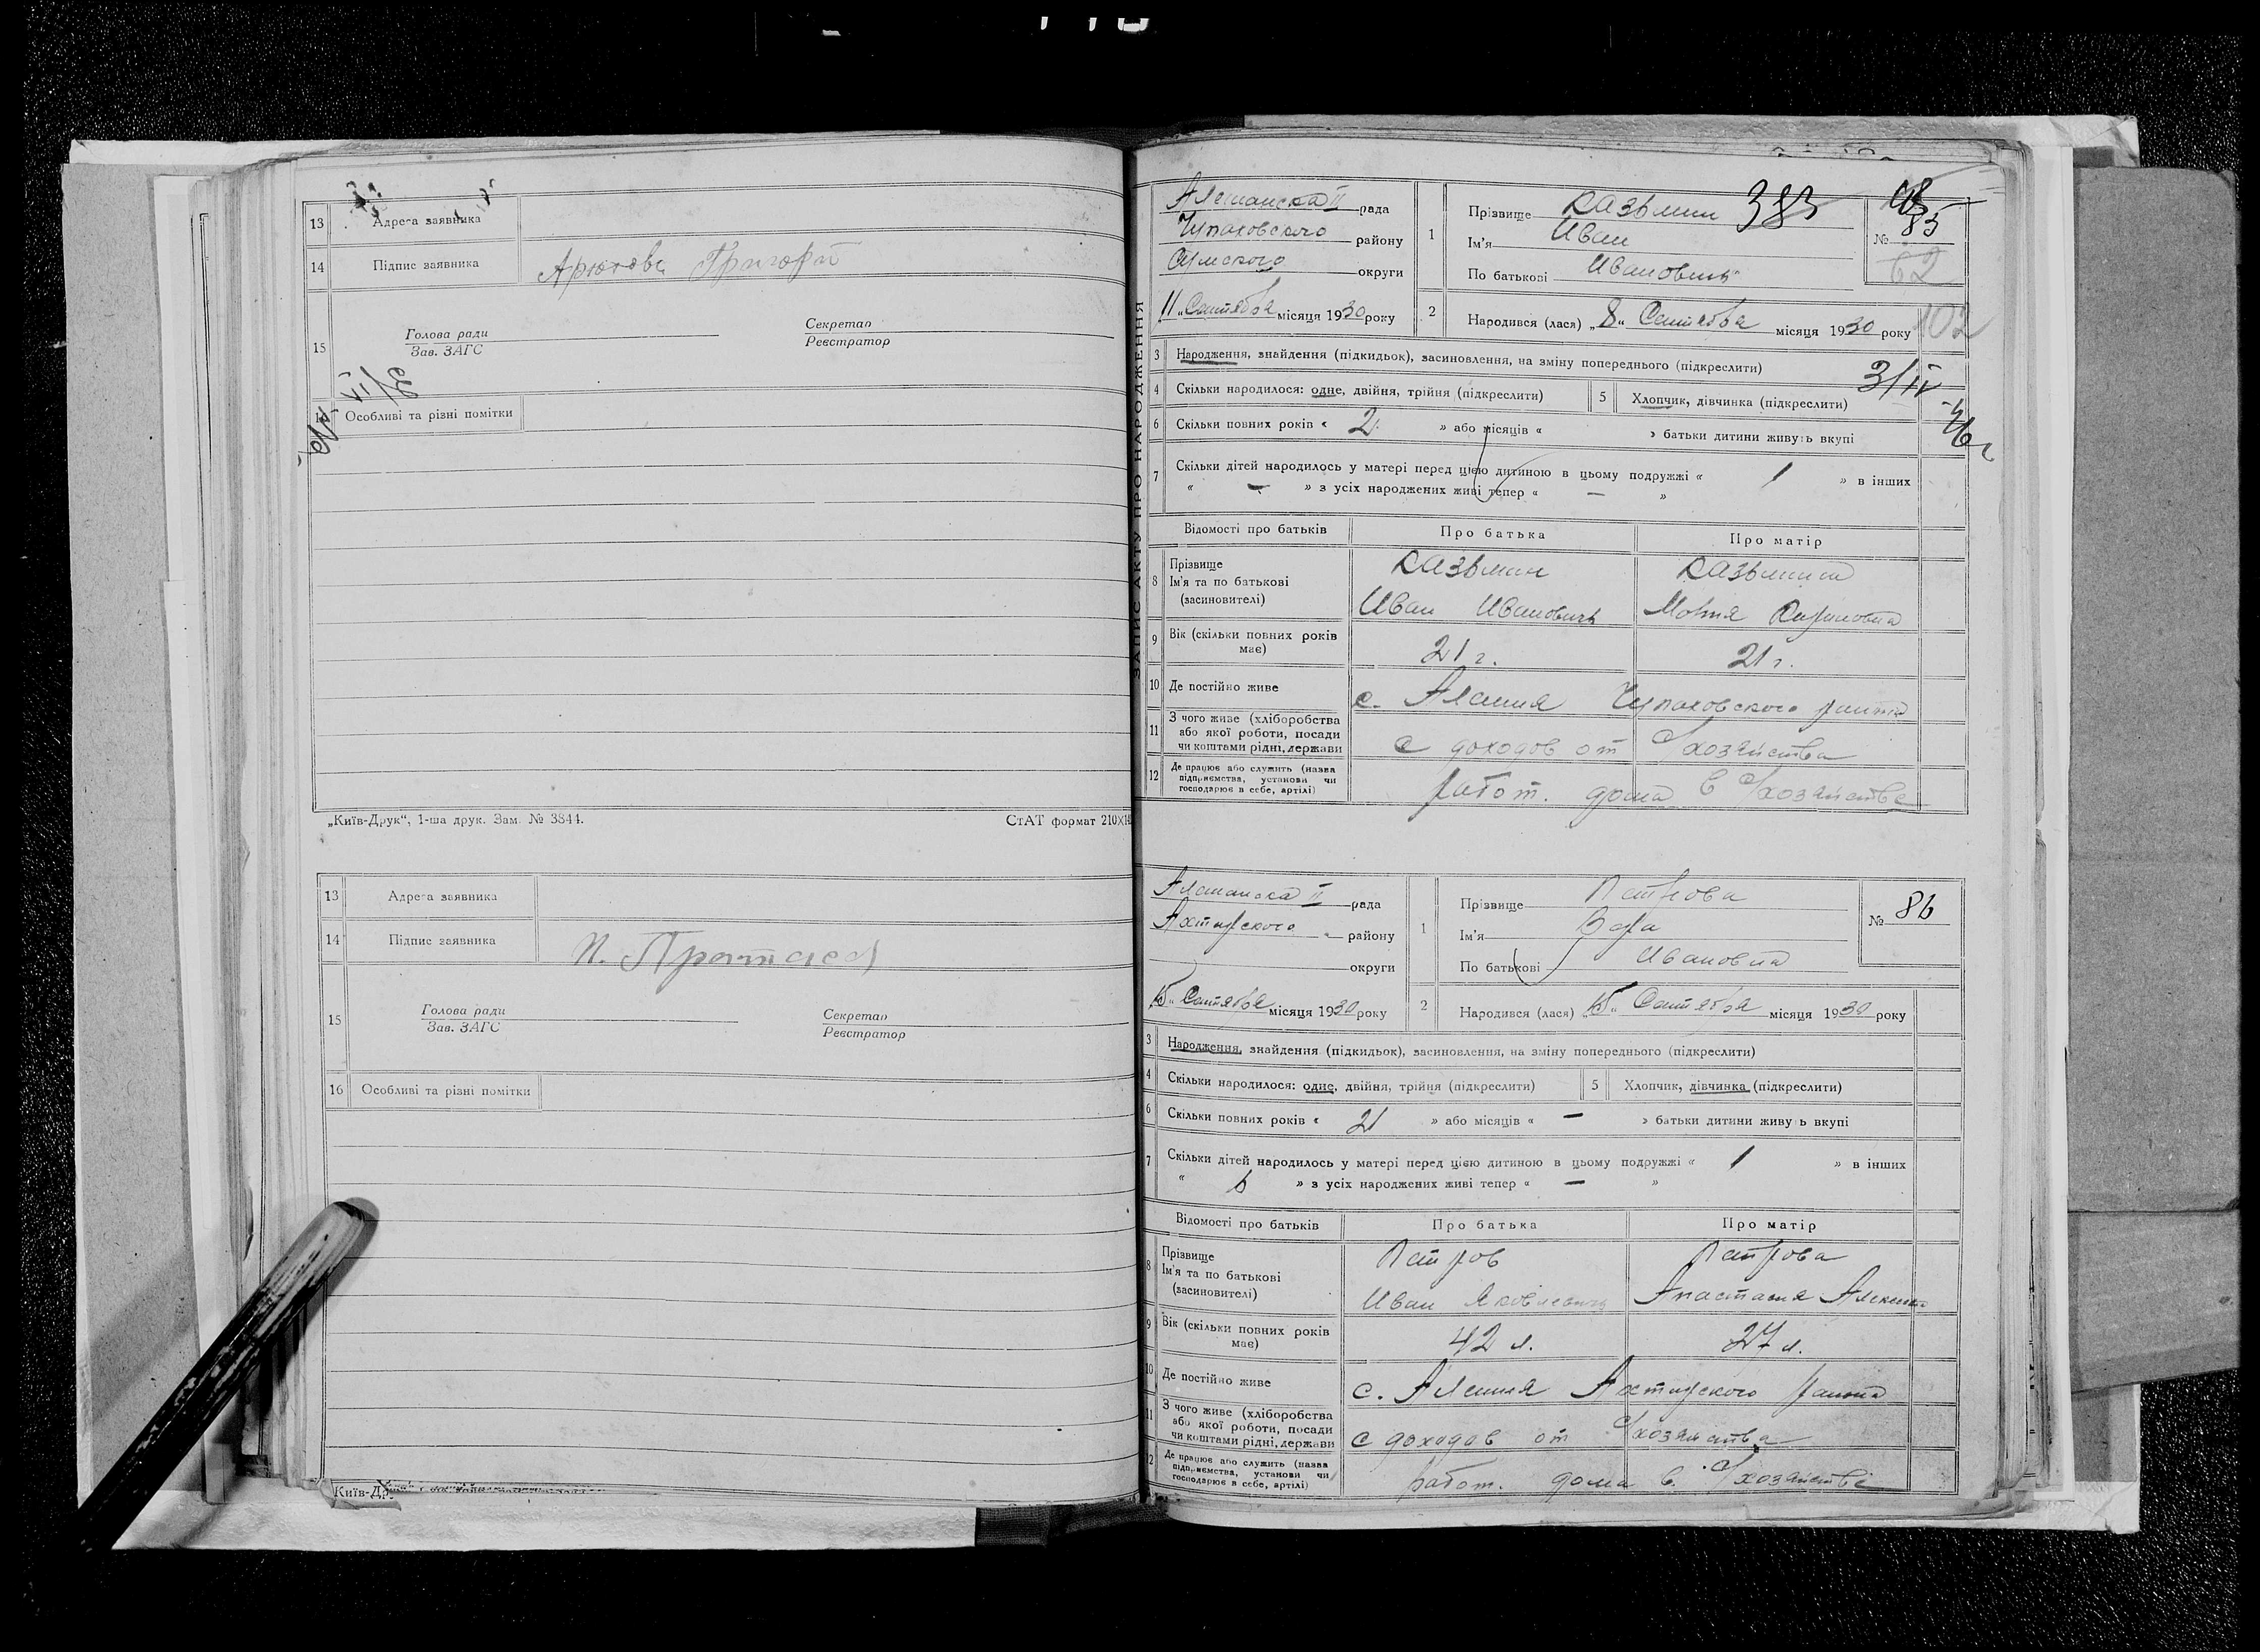 13 Адреса заявника
14 Підпис заявника Григорій
15 Голова ради
Зав. ЗАГС
Секретар
Реєстратор
Особливі та різні помітки
„Київ-Друк“, 1-ша друк. Зам. № 3844. СтАТ формат 210×14
13 Адреса заявника
14 Підпис заявника П.
15 Голова ради
Зав. ЗАГС
Секретар
Реєстратор
16 Особливі та різні помітки
Київ-Др
ЗАПИС АКТУ ПРО НАРОДЖЕННЯ
Алешанска II рада
Чупаховского району
Сумского округи
11 „ Сентября місяця 1930 року
1 Прізвище Казьмин 383
Ім'я Иван
По батькові Иванович
№ 85
62
102
2 Народився (лася) „8“ Сентября місяця 1930 року
3 Народження, знайдення (підкидьок), засиновлення, на зміну попереднього (підкреслити)
3/IV
4 Скільки народилося: одне, двійня, трійня (підкреслити) 5 Хлопчик, дівчинка (підкреслити)
46 г
6 Скільки повних років « 2 » або місяців « » батьки дитини живуть вкупі
7 Скільки дітей народилось у матері перед цією дитиною в цьому подружжі « 1 » в інших
« – » з усіх народжених живі тепер « – »
Відомості про батьків Про батька Про матір
8 Прізвище Казьмин Казьмина
Ім'я та по батькові
(засновителі) Иван Иванович
9 Вік (скільки повних років має) 21 г. 21 г.
10 Де постійно живе с. Алешня Чупаховского района
11 З чого живе (хліборобства
або якої роботи, посади
чи коштами рідні, держави с доходов от с/хозяйства
12 Де працює або служить (назва
підприємства, установи чи
господарює в себе, артілі) работ. дома в с/хозяйстве
Алешанска II рада
Ахтырского району
округи
15 „ Сентября місяця 1930 року
1 Прізвище Петрова
Ім'я Вера
По батькові Ивановна
№ 86
2 Народився (лася) „15“ Сентября місяця 1930 року
3 Народження, знайдення (підкидьок), засиновлення, на зміну попереднього (підкреслити)
4 Скільки народилося: одне, двійня, трійня (підкреслити) 5 Хлопчик, дівчинка (підкреслити)
6 Скільки повних років « 21 » або місяців « – » батьки дитини живуть вкупі
7 Скільки дітей народилось у матері перед цією дитиною в цьому подружжі « 1 » в інших
« » з усіх народжених живі тепер « – »
Відомості про батьків Про батька Про матір
8 Прізвище Петров Петрова
Ім'я та по батькові
(засновителі) Иван Яковлевич Анастасия
9 Вік (скільки повних років має) 42 л. 27 л.
10 Де постійно живе с. Алешня Ахтырского района
11 З чого живе (хліборобства
або якої роботи, посади
чи коштами рідні, держави с доходов от с/хозяйства
12 Де працює або служить (назва
підприємства, установи чи
господарює в себе, артілі) работ. дома в с/хозяйстве